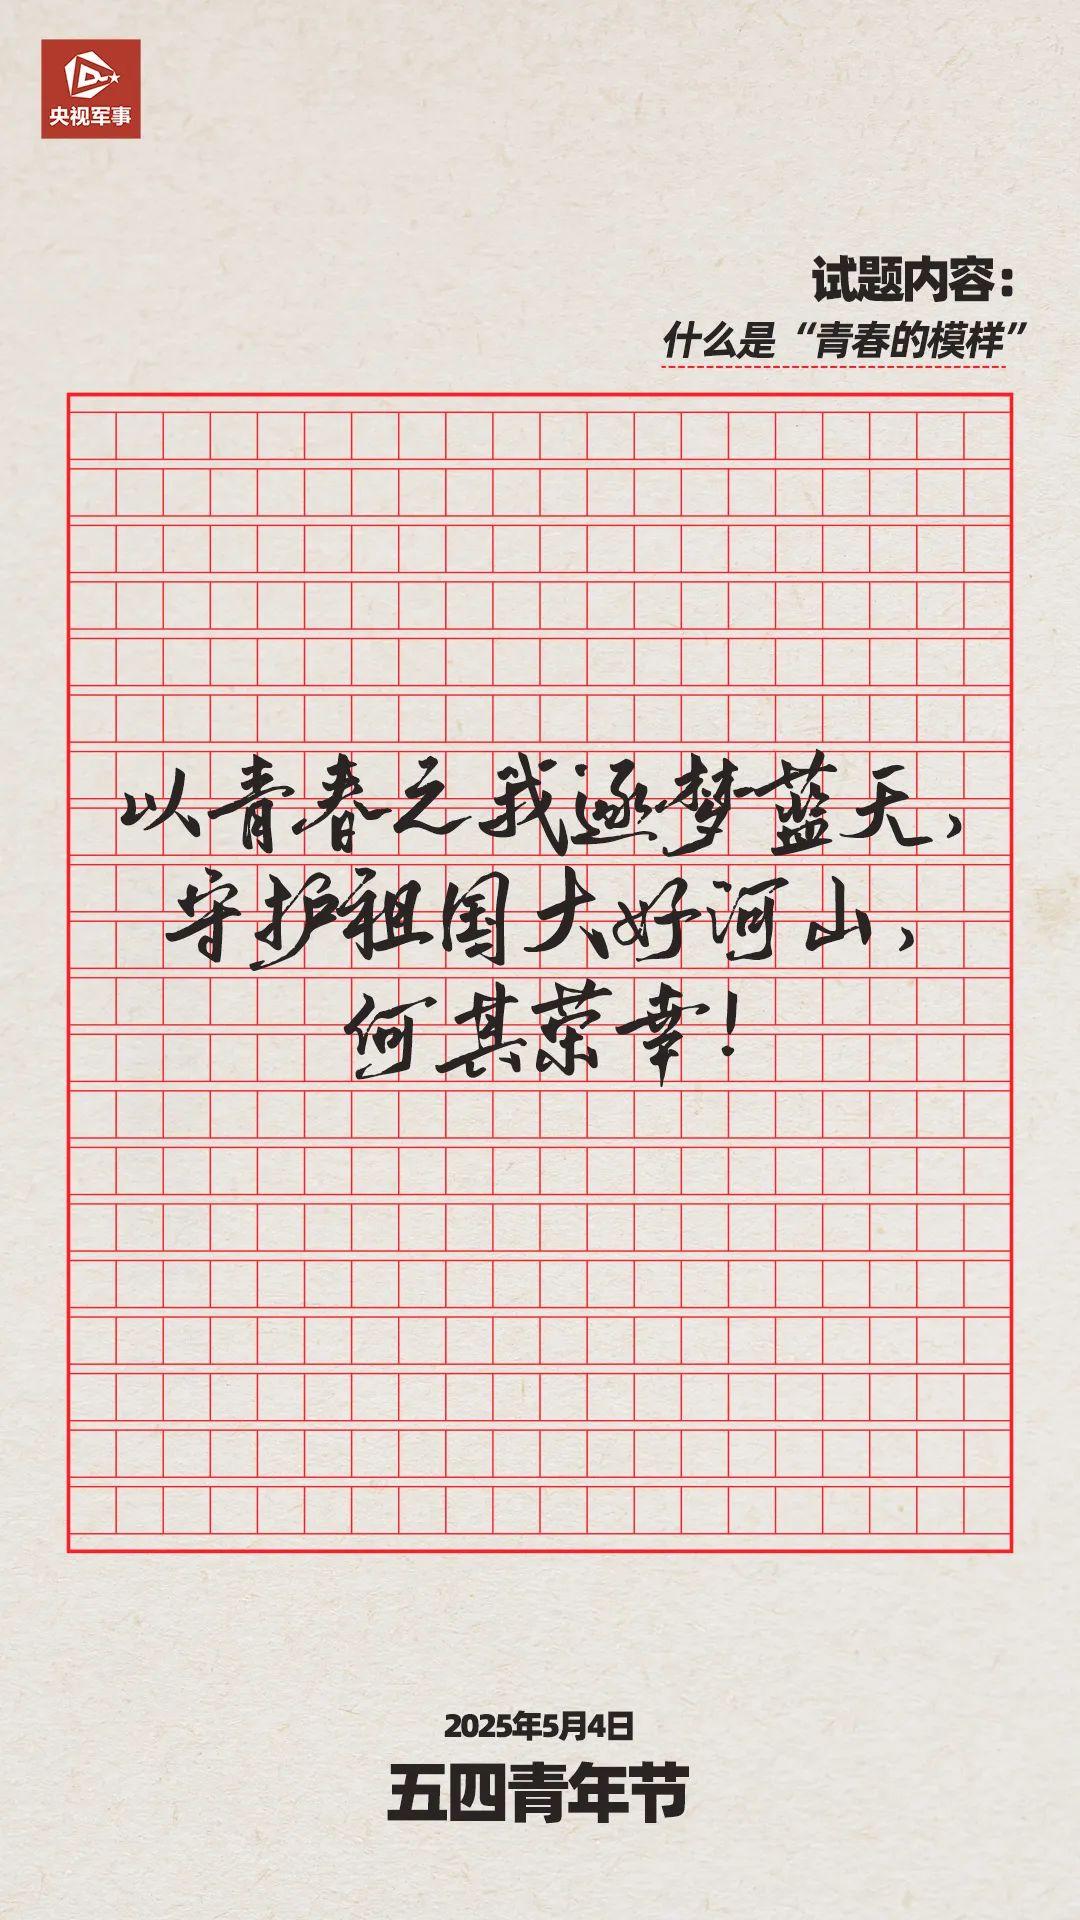 央视军事
试题内容：
什么是“青春的模样”
以青春之我逐梦蓝天，
守护祖国大好河山，
何其荣幸！
2025年5月4日
五四青年节